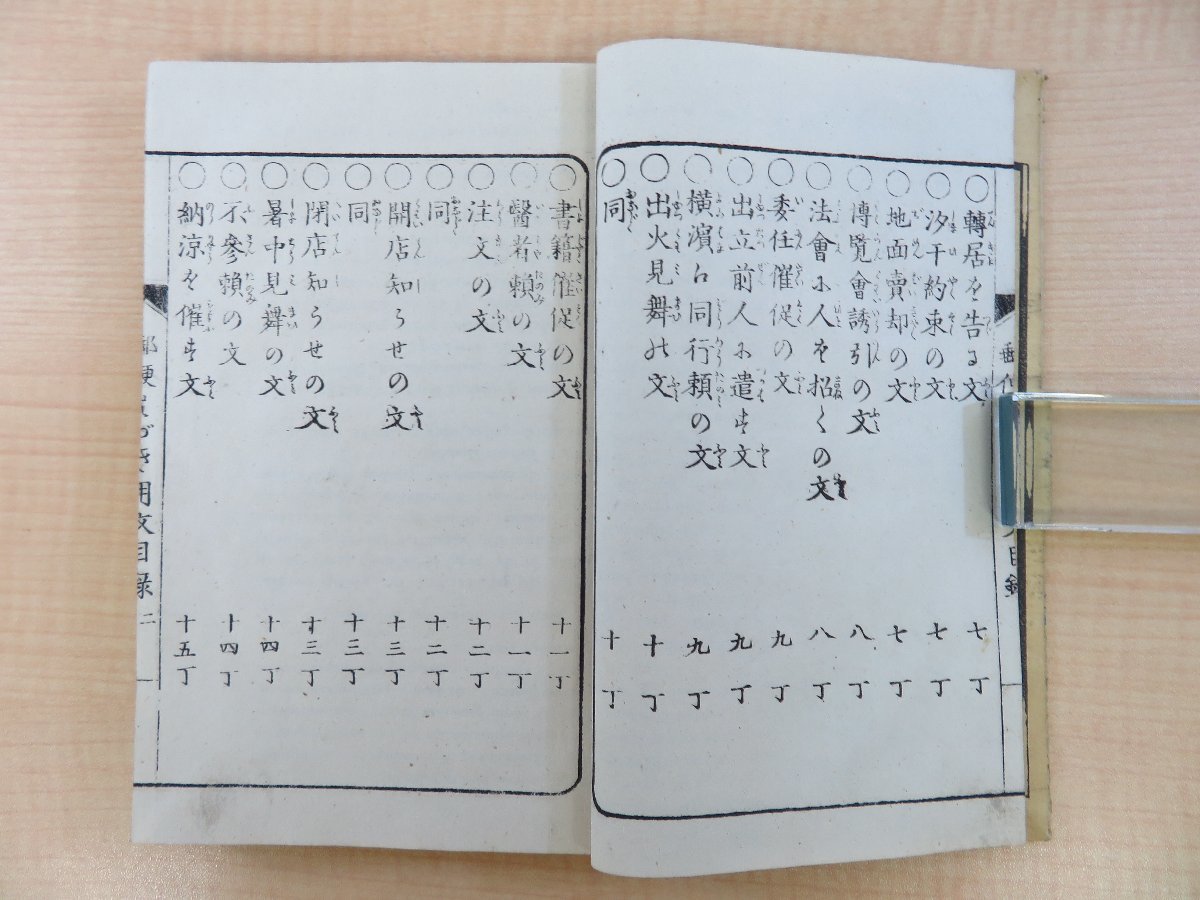 ○轉居を告る文 七丁
○汐干約束の文 七丁
○地面賣却の文 七丁
○博覧會誘引の文 八丁
○法會に人を招くの文 八丁
○委任催促の文 九丁
○出立前人に遣す文 九丁
○横濱へ同行頼の文 九丁
○出火見舞の文 十丁
○同 十丁
○書籍催促の文 十一丁
○醫者頼の文 十一丁
○注文の文 十二丁
○同 十二丁
○開店知らせの文 十三丁
○同 十三丁
○閉店知らせの文 十三丁
○暑中見舞の文 十四丁
○不參頼の文 十四丁
○納涼を催す文 十五丁
用文目録 二